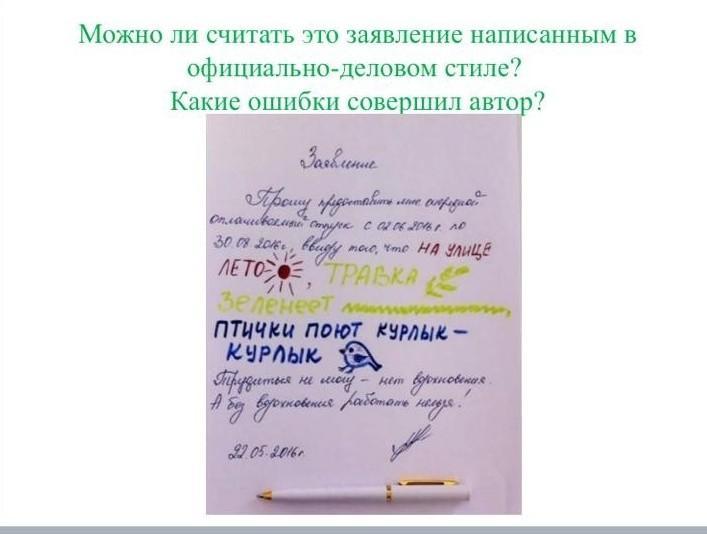 Можно ли считать это заявление написанным в
официально-деловом стиле?
Какие ошибки совершил автор?
Заявление
Прошу предоставить мне очередной
оплачиваемый отпуск с 02.06.2016г. по
30.08.2016г., ввиду того, что НА УЛИЦЕ
ЛЕТО, ТРАВКА
Зеленеет
ПТИЧКИ ПОЮТ КУРЛЫК –
КУРЛЫК
Трудиться не могу – нет вдохновения.
А без вдохновения работать нельзя!
22.05.2016г.